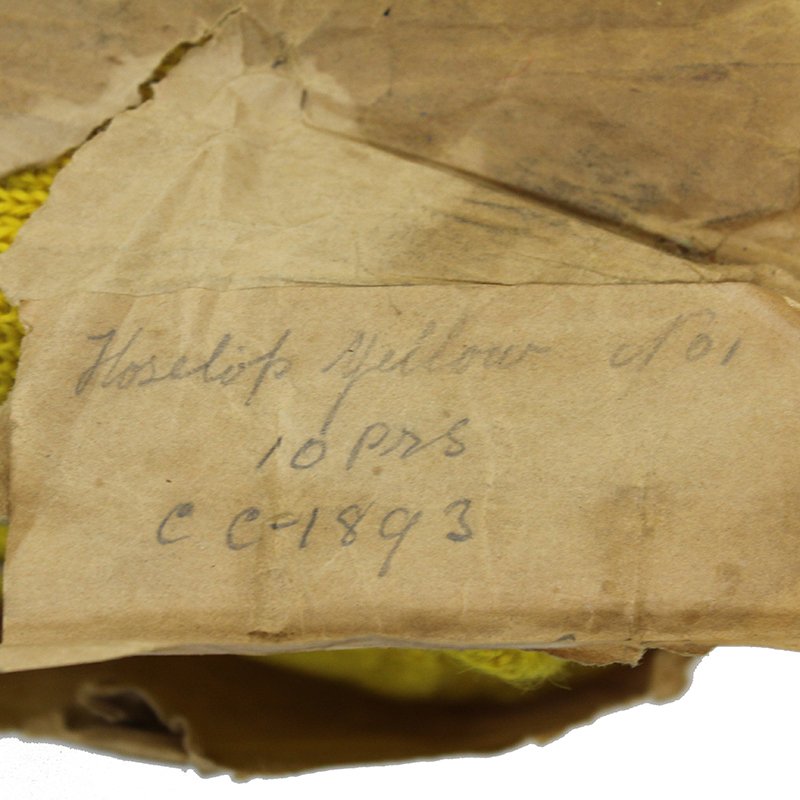 Hoselop Yellow No1
10 Prs
C C-1893